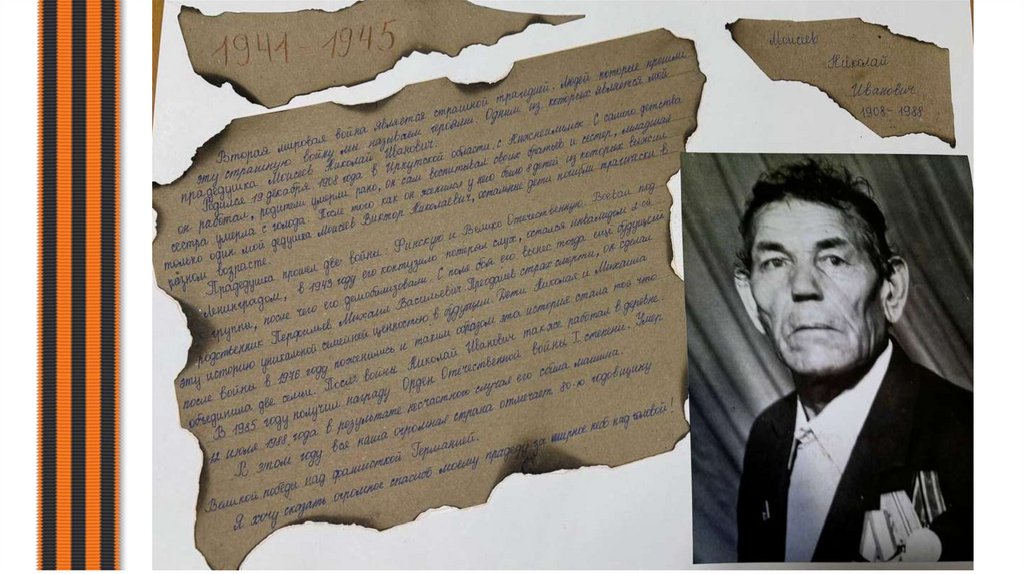 1941-1945
Моисеев
Николай
Иванович
1908-1988
Вторая мировая война является страшной трагедией. Людей которые прошли
эту страшную войну мы называем героями. Одним из которых является мой
прадедушка Моисеев Николай Иванович.
Родился 19 декабря 1908 года в Иркутской области с. Нижнеилимск. С самого детства
он работал, родители умерли рано, он сам воспитывал своих братьев и сестер, младшая
сестра умерла с голода. После того как он женился у него было 8 детей из которых выжил
только один мой дедушка Моисеев Виктор Николаевич, остальные дети погибли трагически в
разном возрасте.
Прадедушка прошел две войны Финскую и Велико Отечественную. Воевал под
Ленинградом, в 1943 году его контузило потерял слух, остался инвалидом 2-ой
группы, после чего его демобилизовали. С поля боя его вынес тогда ещё будущий
родственник Перфильев Михаил Васильевич Преодалев страх смерти, он сделал
эту историю уникальной семейной ценностью в будущем. Дети Николая и Михаила
после войны в 1976 году поженились и таким образом эта история стала той что
объединила две семьи. После войны Николай Иванович также работал в деревне.
В 1985 году получил награду Орден Отечественной войны I степени. Умер
22 июля 1988 года в результате несчастного случая его сбила машина.
В этом году вся наша огромная страна отмечает 80-ю годовщину
Великой победы над фашисткой Германией.
Я хочу сказать огромное спасибо моему прадеду за мирное небо над головой!